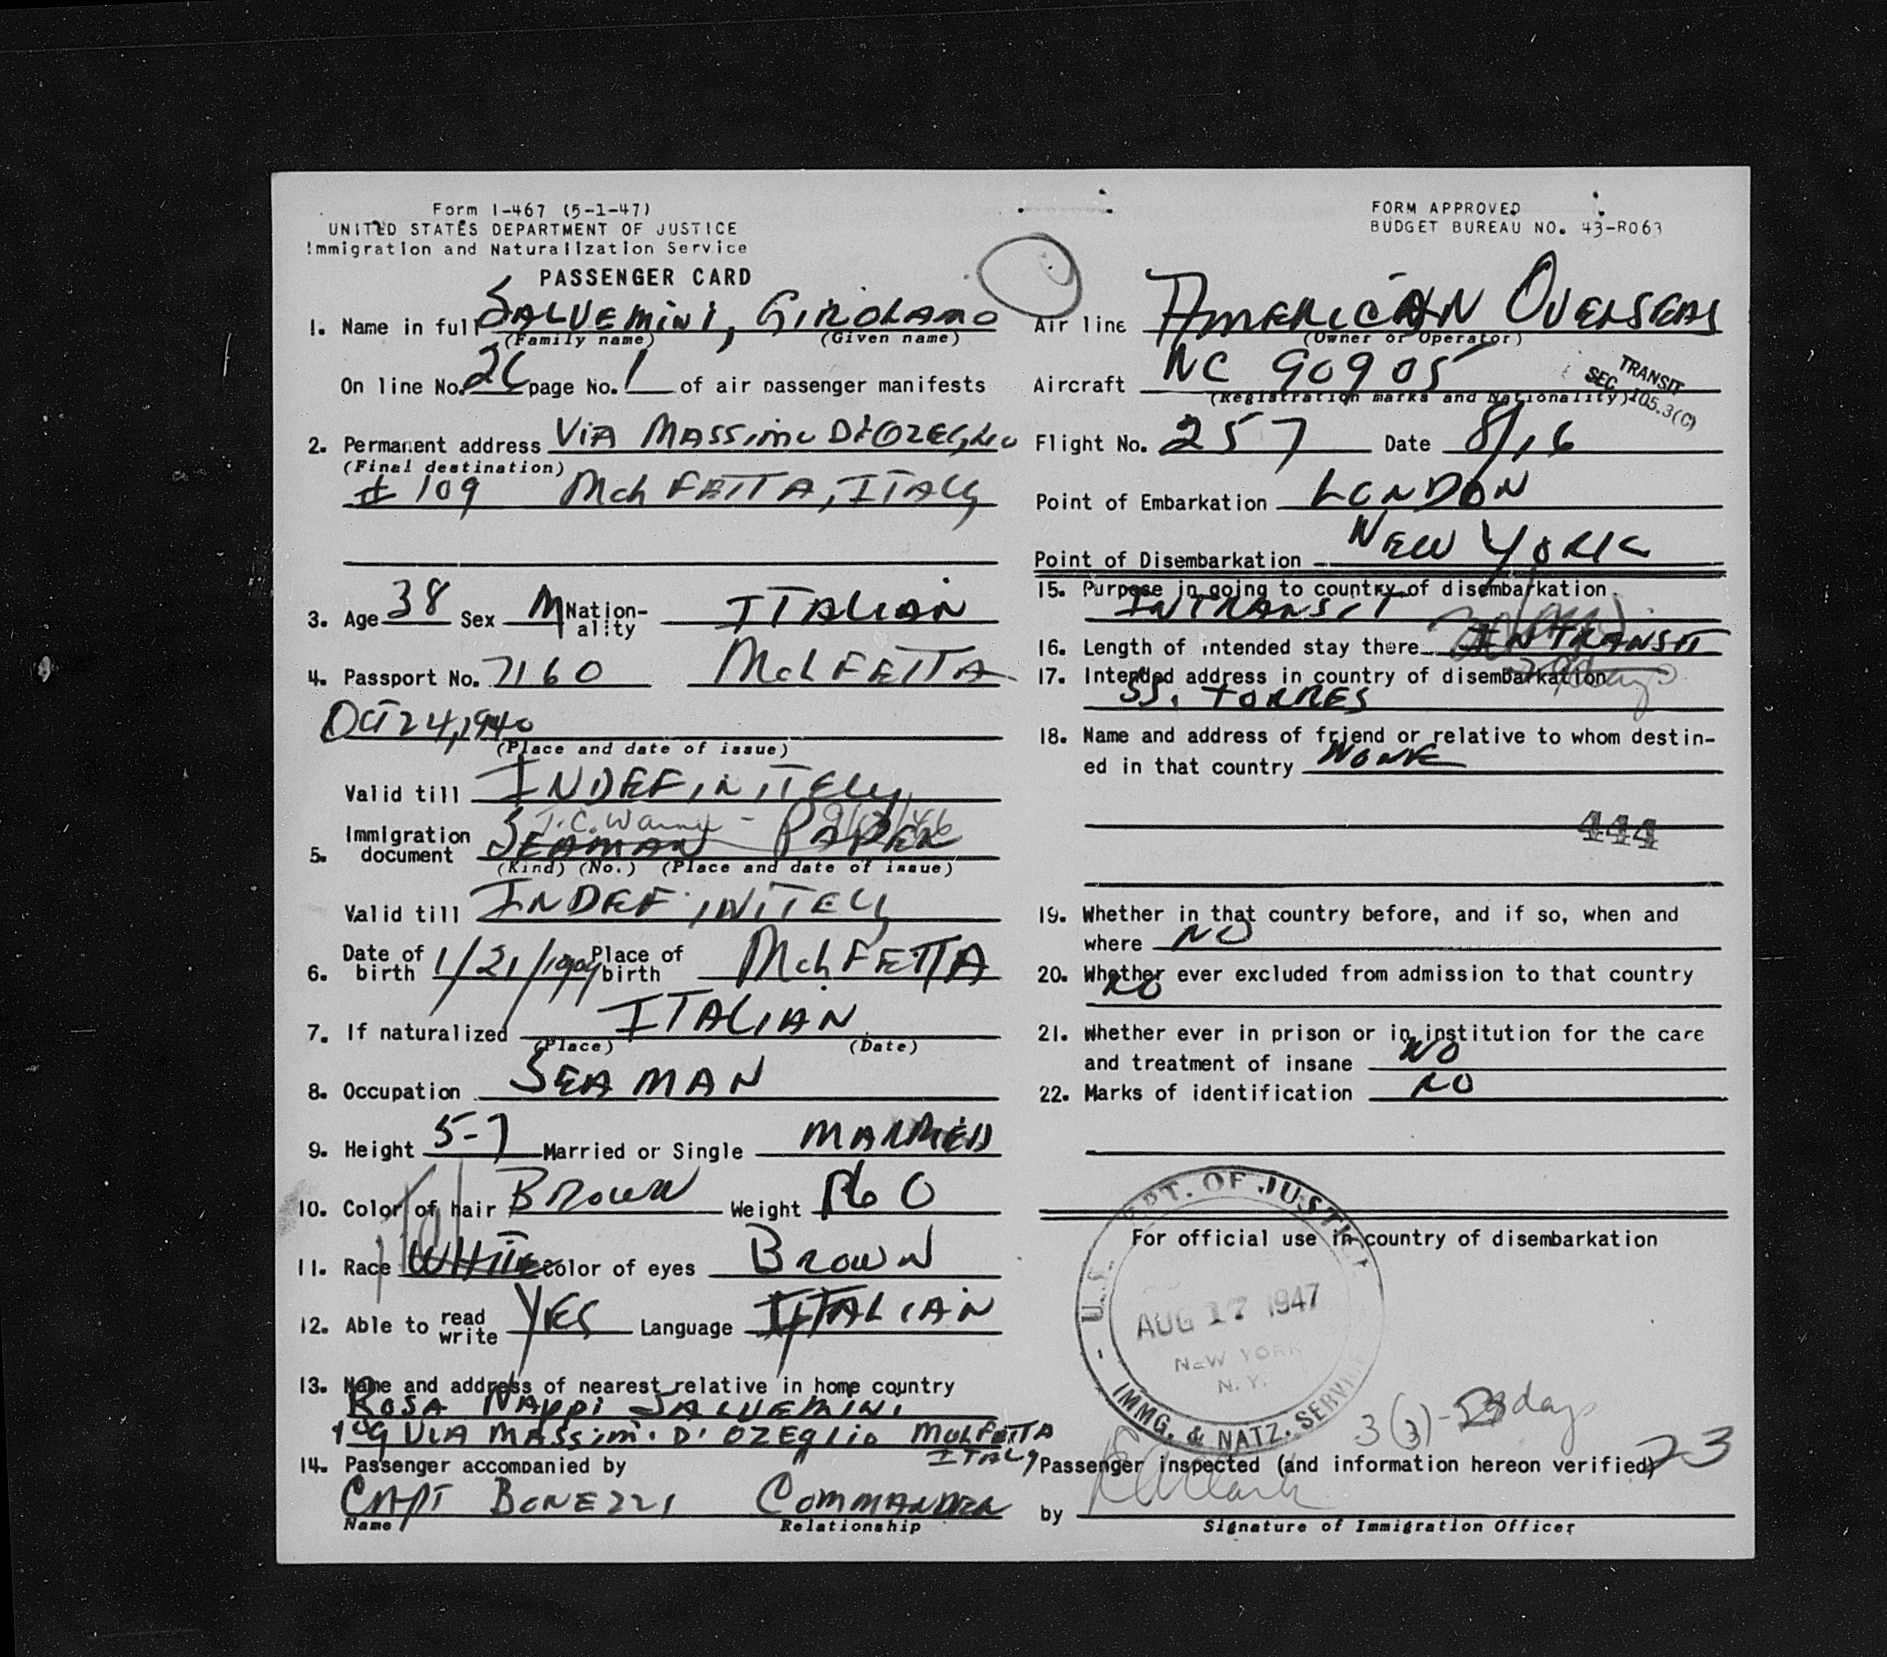 Form I-467 (5-1-47)
UNITED STATES DEPARTMENT OF JUSTICE
Immigration and Naturalization Service
PASSENGER CARD
FORM APPROVED
BUDGET BUREAU NO. 43-R063
1. Name in full SALVEMINI, GIROLAMO
(Family name) (Given name)
On line No. 26 page No. 1 of air passenger manifests
2. Permanent address VIA MASSIMO D'OZEGLIO
(Final destination)
# 109 MOLFETTA, ITALY
3. Age 38 Sex M Nationality ITALIAN
4. Passport No. 7160 MOLFETTA
OCT 24, 1940
(Place and date of issue)
Valid till INDEFINITELY
5. Immigration document SEAMAN PAPER
(Kind) (No.) (Place and date of issue)
Valid till INDEFINITELY
6. Date of birth 1/21/1909 Place of birth MOLFETTA
7. If naturalized ITALIAN
(Place) (Date)
8. Occupation SEAMAN
9. Height 5-7 Married or Single MARRIED
10. Color of hair BROWN Weight 160
11. Race WHITE Color of eyes BROWN
12. Able to read write YES Language ITALIAN
13. Name and address of nearest relative in home country
ROSA NAPPI SALVEMINI
109 VIA MASSIM. D' OZEGLIO MOLFETTA
ITALY
14. Passenger accompanied by
CAPT BONEZZI COMMANDER
Name Relationship
Air line AMERICAN OVERSEAS
(Owner or Operator)
Aircraft NC 90905
(Registration marks and Nationality)
TRANSIT
SEC. 105.3(C)
Flight No. 257 Date 8/16
Point of Embarkation LONDON
Point of Disembarkation NEW YORK
15. Purpose in going to country of disembarkation
IN TRANSIT
16. Length of intended stay there IN TRANSIT
17. Intended address in country of disembarkation
SS. TORRES
18. Name and address of friend or relative to whom destin-
ed in that country NONE
444
19. Whether in that country before, and if so, when and
where NO
20. Whether ever excluded from admission to that country
NO
21. Whether ever in prison or in institution for the care
and treatment of insane NO
22. Marks of identification NO
For official use in country of disembarkation
U.S. DEPT. OF JUSTICE
AUG 17 1947
NEW YORK
N. Y.
IMMG. & NATZ. SERVICE
3(3) - 23 days
Passenger inspected (and information hereon verified) 23
by
Signature of Immigration Officer